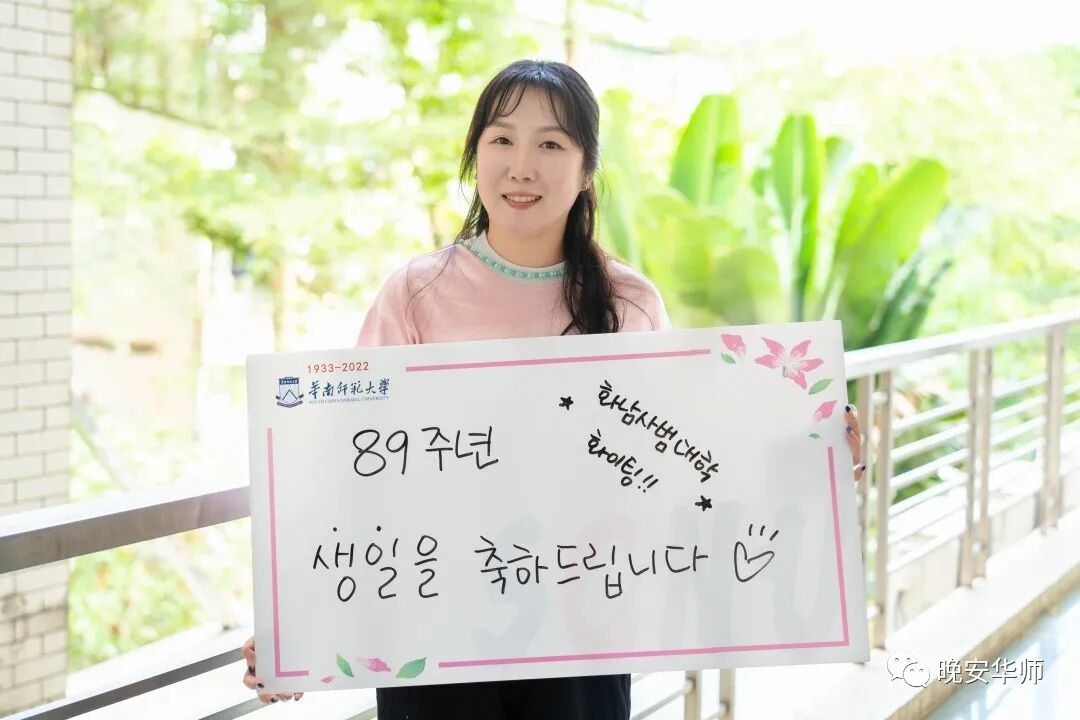 1933-2022
華南師範大學
SOUTH CHINA NORMAL UNIVERSITY
89주년
화남사범대학
화이팅!!
생일을 축하드립니다
SCNU
晚安华师